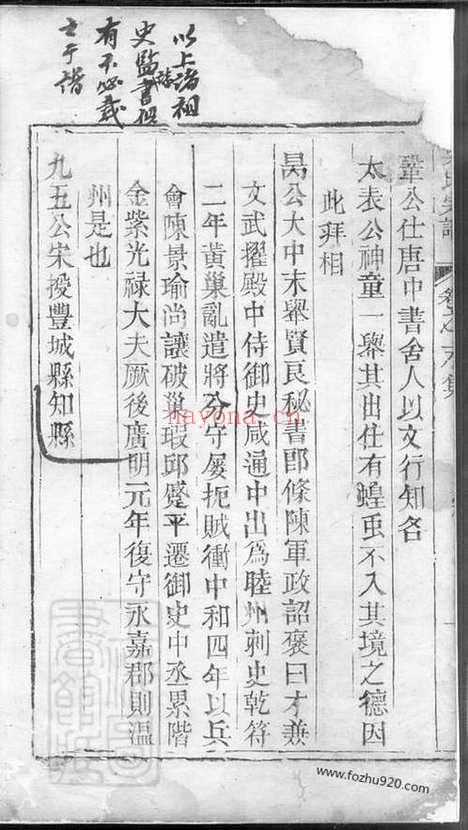 以上諸祖
史監書但
有不必載
士于譜
鞏公仕唐中書舍人以文行知名
太表公神童一舉其出仕有蝗虫不入其境之德因
此拜相
昺公大中末舉賢良秘書郎條陳軍政詔褒曰才兼
文武擢殿中侍御史咸通中出為睦州刺史乾符
二年黃巢亂遣將公守屡扼賊衝中和四年以兵
會陳景瑜尚讓破巢瑕邱蹙平遷御史中丞累階
金紫光禄大夫厥後廣明元年復守永嘉郡則溫
州是也
九五公宋授豐城縣知縣
hayona.cn
www.fozhu920.com